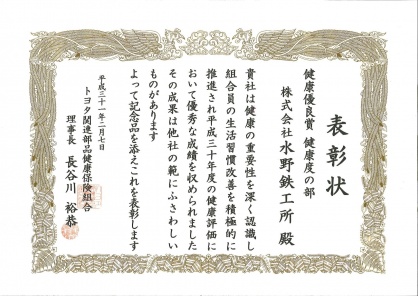 表彰状
健康優良賞 健康度の部
株式会社水野鉄工所 殿
貴社は健康の重要性を深く認識し
組合員の生活習慣改善を積極的に
推進され平成三十年度の健康評価に
おいて優秀な成績を収められました
その成果は他社の範にふさわしい
ものがあります
よって記念品を添えこれを表彰します
平成三十一年二月七日
トヨタ関連部品健康保険組合
理事長 長谷川 裕恭